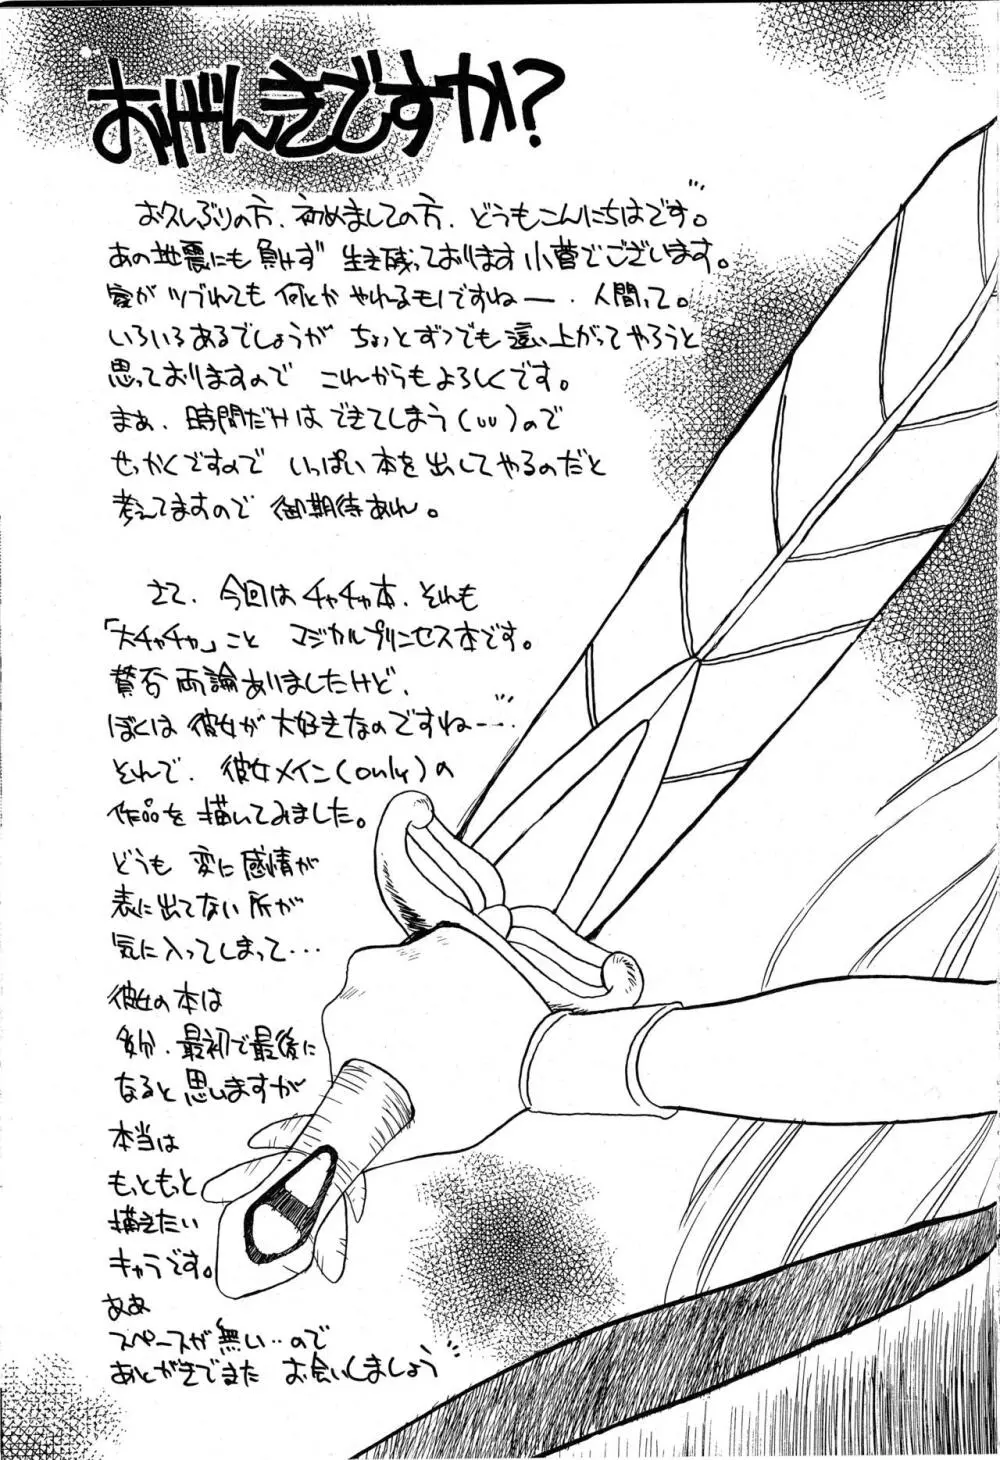 おげんきですか?
お久しぶりの方、初めましての方、どうもこんにちはです。
あの地震にも負けず 生き残っております小菅でございます。
家がツブれても 何とか やれるモノですねー、人間って。
いろいろあるでしょうが ちょっとずつでも這い上がってやろうと
思っておりますので これからもよろしくです。
まぁ、時間だけは できてしまう(UU)ので
せっかくですので いっぱい本を出してやるのだと
考えてますので 御期待あれ。
さて、今回はチャチャ本、それも
「大チャチャ」こと マジカルプリンセス本です。
賛否両論ありましたけど、
ぼくは 彼女が大好きなのですねー…
それで、彼女メイン(only)の
作品を 描いてみました。
どうも 変に感情が
表に出てない所が
気に入ってしまって…
彼女の本は
多分、最初で最後に
なると思いますが
本当は
もっともっと
描きたい
キャラです。
ああ
スペースが無い…ので
あとがきでまた お会いしましょう